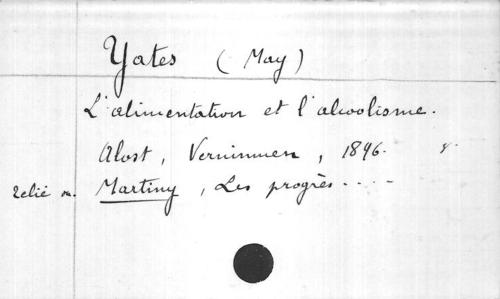 Yates (May)
L'alimentation et l'alcoolisme.
Alost, Vernimmen, 1896. 8.
Relié av. Martiny, Les progrès....